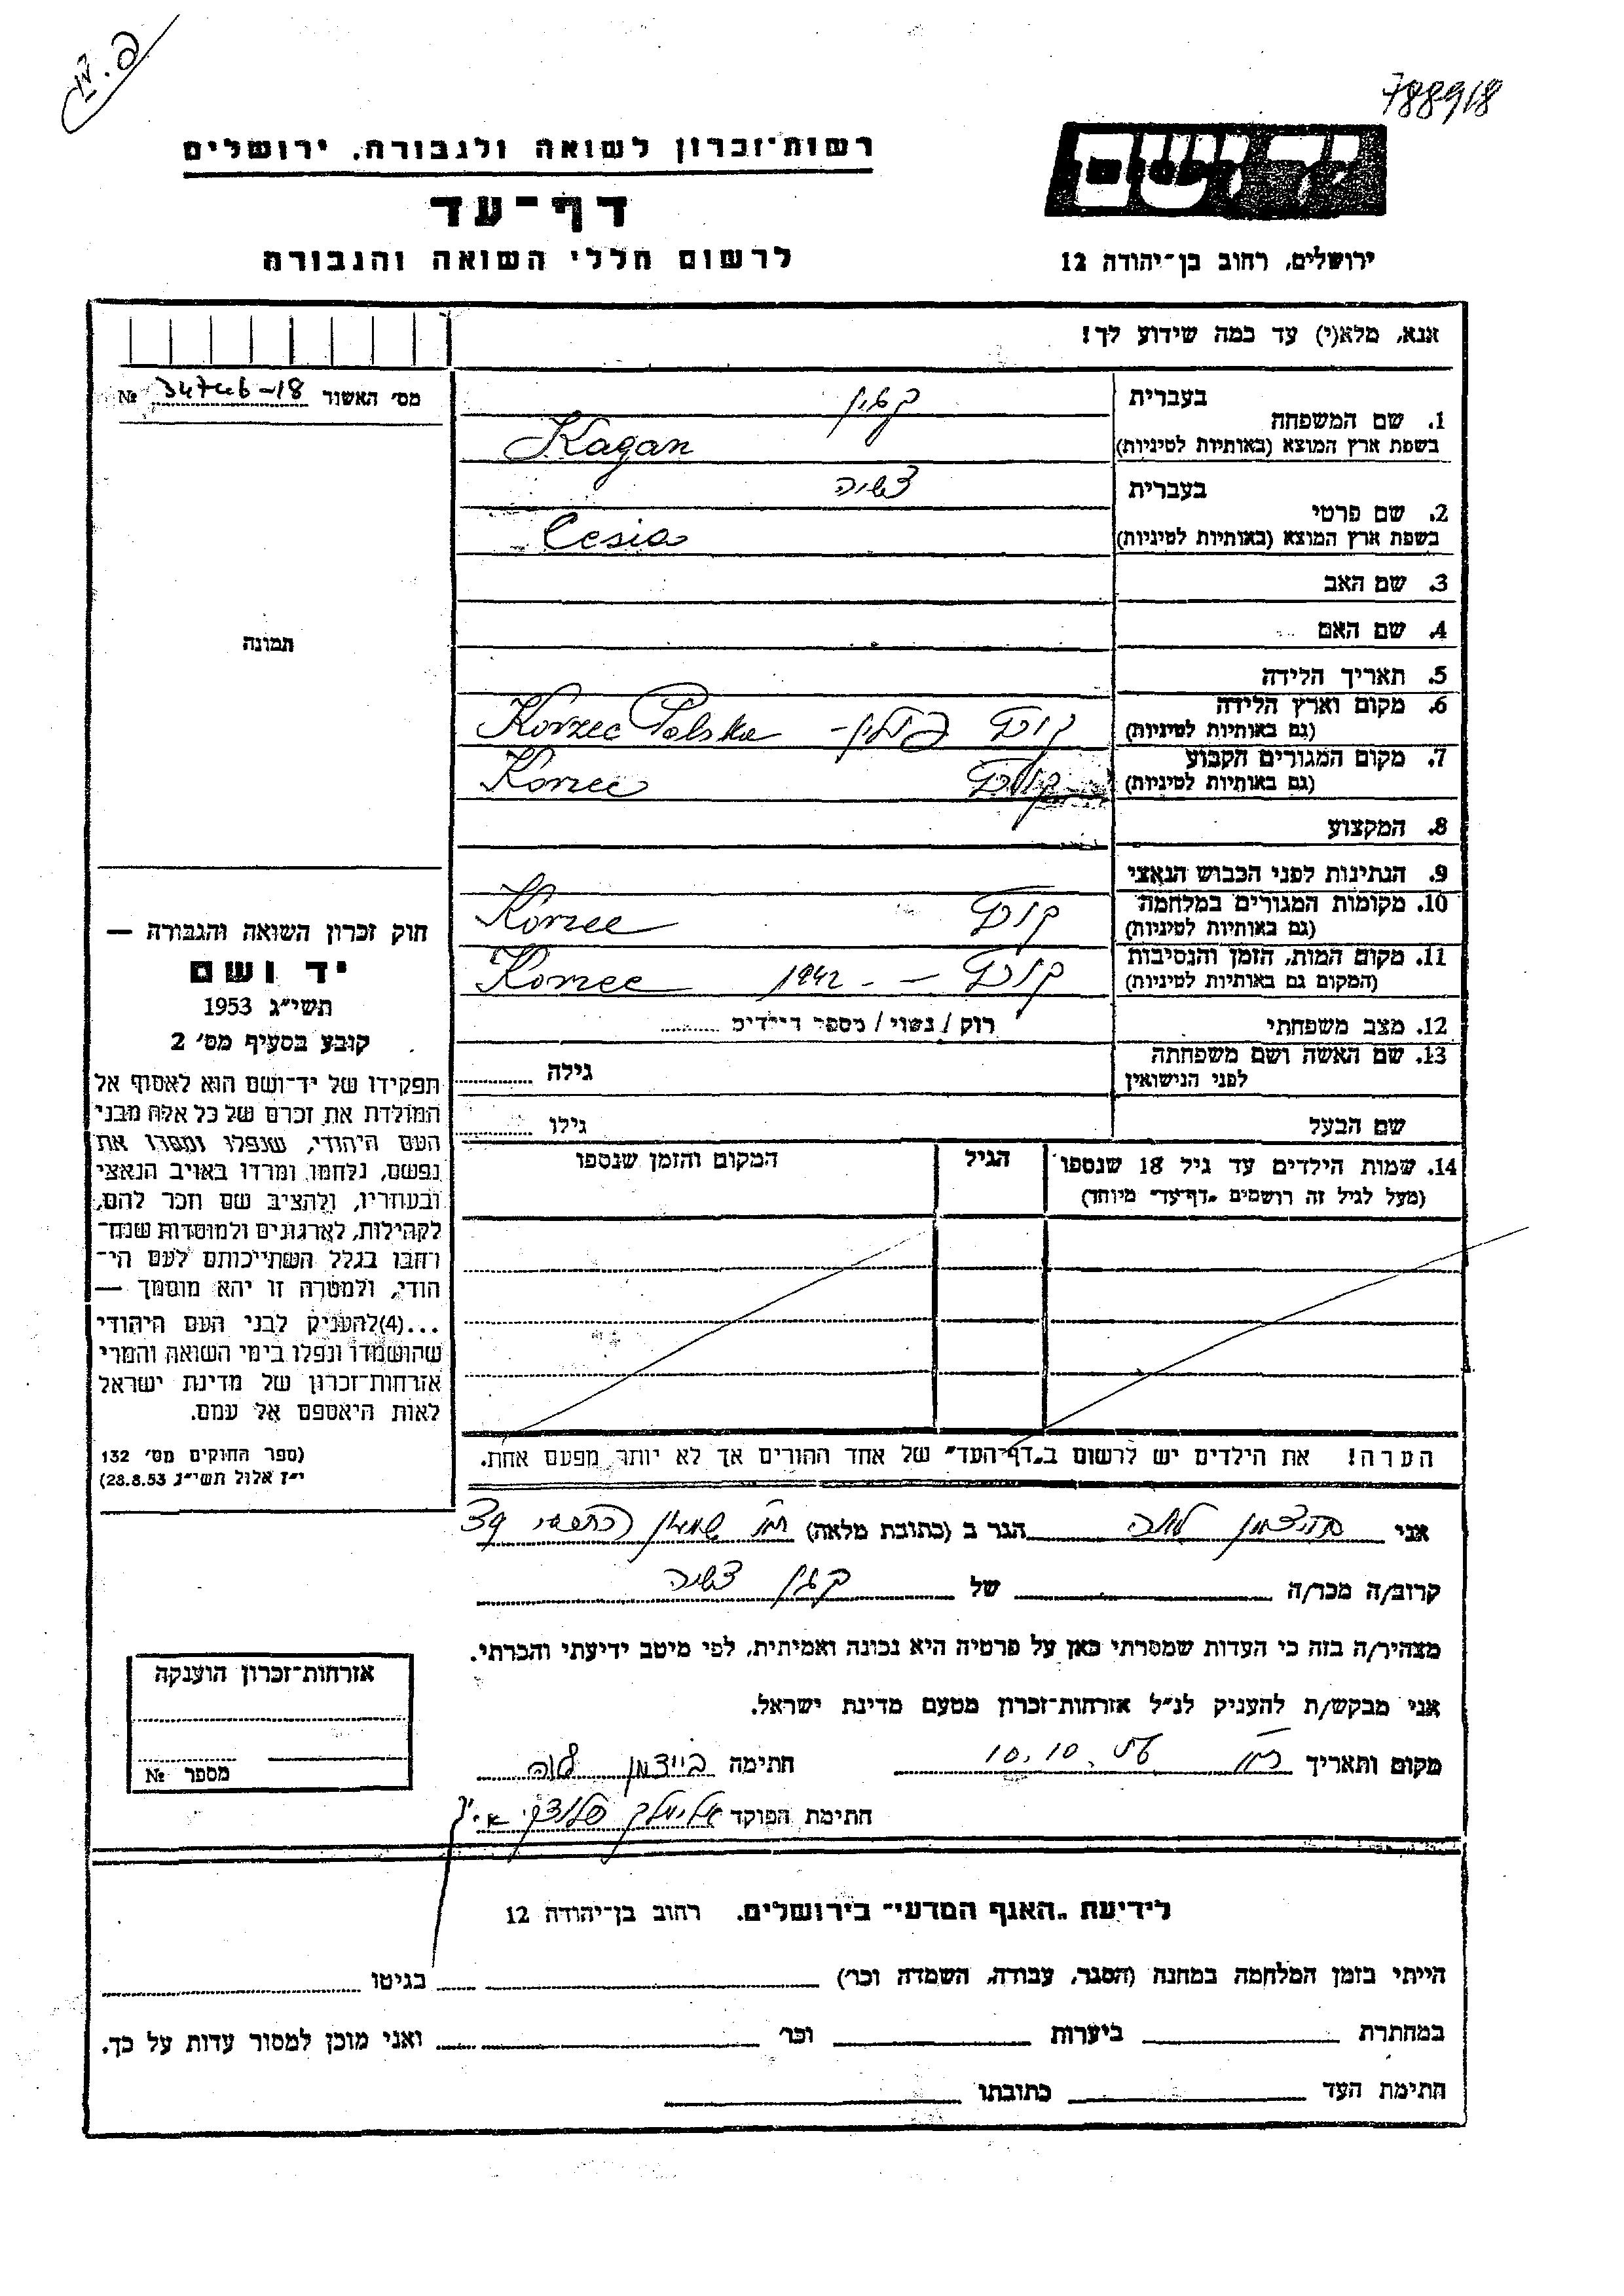 788918
יד ושם
רשות־זכרון לשואה ולגבורה, ירושלים
דף־עד
לרשום חללי השואה והגבורה
ירושלים, רחוב בן־יהודה 12
אנא, מלא(י) עד כמה שידוע לך!
מס׳ האשור 34746-18 №
תמונה
בעברית
1. שם המשפחה
בשפת ארץ המוצא (באותיות לטיניות) Kagan
בעברית צשיה
2. שם פרטי
בשפת ארץ המוצא (באותיות לטיניות) Cesia
3. שם האב
4. שם האם
5. תאריך הלידה
6. מקום וארץ הלידה
(גם באותיות לטיניות) קורץ פולין - Korzec Polska
7. מקום המגורים הקבוע
(גם באותיות לטיניות) קורץ Korzec
8. המקצוע
9. הנתינות לפני הכבוש הנאצי
10. מקומות המגורים במלחמה
(גם באותיות לטיניות) קורץ Korzec
11. מקום המות, הזמן והנסיבות
(המקום גם באותיות לטיניות) קורץ - 1942 Korzec
12. מצב משפחתי רוק / נשוי / מספר הילדים
13. שם האשה ושם משפחתה
לפני הנישואין גילה
שם הבעל גילו
14. שמות הילדים עד גיל 18 שנספו הגיל המקום והזמן שנספו
(מעל לגיל זה רושמים „דף־עד״ מיוחד)
הערה! את הילדים יש לרשום ב„דף־העד״ של אחד ההורים אך לא יותר מפעם אחת.
חוק זכרון השואה והגבורה —
יד ושם
תשי״ג 1953
קובע בסעיף מס׳ 2
תפקידו של יד־ושם הוא לאסוף אל
המולדת את זכרם של כל אלה מבני
העם היהודי, שנפלו ומסרו את
נפשם, נלחמו ומרדו באויב הנאצי
ובעוזריו, ולהציב שם וזכר להם,
לקהילות, לארגונים ולמוסדות שנח־
רבו בגלל השתייכותם לעם הי־
הודי, ולמטרה זו יהא מוסמך —
...(4) להעניק לבני העם היהודי
שהושמדו ונפלו בימי השואה והמרי
אזרחות־זכרון של מדינת ישראל
לאות היאספם אל עמם.
(ספר החוקים מס׳ 132
י״ז אלול תשי״ג 28.8.53)
אני הגר ב (כתובת מלאה) 39
קרוב/ה מכר/ה של קגן צשיה
מצהיר/ה בזה כי העדות שמסרתי כאן על פרטיה היא נכונה ואמיתית, לפי מיטב ידיעתי והכרתי.
אני מבקש/ת להעניק לנ״ל אזרחות־זכרון מטעם מדינת ישראל.
מקום ותאריך 10.10 חתימה
חתימת הפוקד
אזרחות־זכרון הוענקה
מספר №
לידיעת „האגף המדעי״ בירושלים, רחוב בן־יהודה 12
הייתי בזמן המלחמה במחנה (הסגר, עבודה, השמדה וכו׳) בגיטו
במחתרת ביערות וכו׳ ואני מוכן למסור עדות על כך.
חתימת העד כתובתו